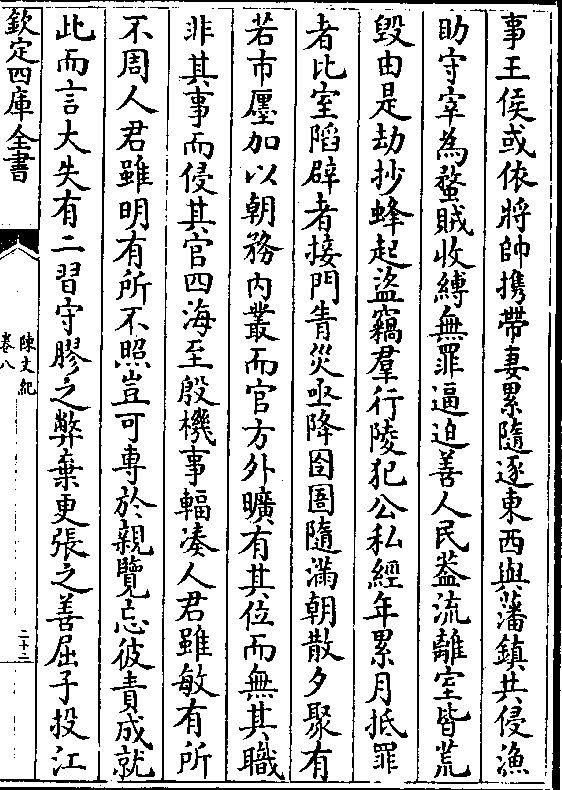 事王侯或依將帥携帶妻累隨逐東西與藩鎮共侵漁
助守宰為蝥賊收縛無罪逼迫善人民盡流離室皆荒
毀由是劫抄蜂起盜竊羣行陵犯公私經年累月抵罪
者比室䧟辟者接門眚災亟降囹圄隨滿朝散夕聚有
若市㕓加以朝務内叢而官方外曠有其位而無其職
非其事而侵其官四海至殷機事輻湊人君雖敏有所
不周人君雖明有所不照豈可專於親覽忘彼責成就
此而言大失有二習守膠之弊棄更張之善屈子投江
欽定四庫全書
陳文紀
卷八
二十二